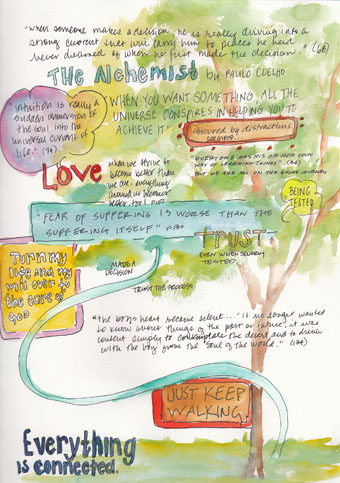 "when someone makes a decision, he is really diving into a
strong current that will carry him to places he had
never dreamed of when he first made the decision." (68)
THE Alchemist by PAULO COELHO
"intuition is really a
sudden immersion of
the soul into the
universal current of
life." (74)
"WHEN YOU WANT SOMETHING ALL THE
UNIVERSE CONSPIRES IN HELPING YOU TO
ACHIEVE IT"
obscured by distractions
LOVE
when we strive to
become better than
we are, everything
around us becomes
better, too
"EVERYONE HAS HIS OR HER OWN
WAY OF LEARNING THINGS"
BUT WE ARE ALL ON THE SAME JOURNEY
BEING
TESTED
"FEAR OF SUFFERING IS WORSE THAN THE
SUFFERING ITSELF"
TRUST
EVEN WHEN SEVERELY
TESTED
Turn my
life and my
will over to
the care of
God
MADE A
DECISION
TRUST THE PROCESS
"the boy's heart became silent..." "it no longer wanted
to know about things of the past or future; it was
content simply to contemplate the desert and to drink
with the boy from the "soul of the world." (134)
JUST KEEP
WALKING.
Everything
is connected.